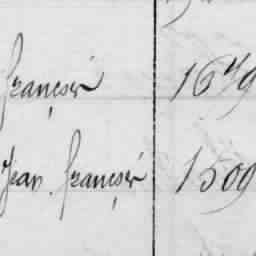 françois 1679
Jean françois 1509